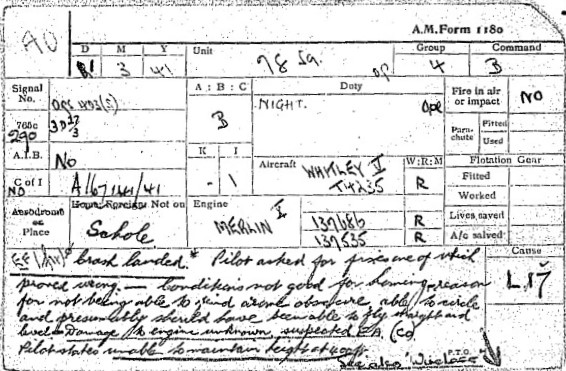 A.M. Form 1180
AO
D M Y Unit Group Command
3 41 78 Sq. 4 B
Signal No. A : B : C Duty Fire in air or impact NO
NIGHT. Ope
765c B Para-chute Fitted
290 Used
A.I.B. No K I Aircraft WHITLEY V W:R:M Flotation Gear
T4235 R Fitted
C of I NO - 1 Worked
Aerodrome or Place Home, Foreign Not on Engine 137686 R Lives saved
Schole MERLIN X 137535 R A/c salved
Crash landed.* Pilot asked for fixes one of which Cause
proved wrong. — Conditions not good for homing, reason L.17
for not being able to find airone obscure, able to circle
and presumably should have been able to fly straight and
level. Damage to engine unknown, suspected EA. (Co)
Pilot states unable to maintain height at
See also 'Wireless' P.T.O.